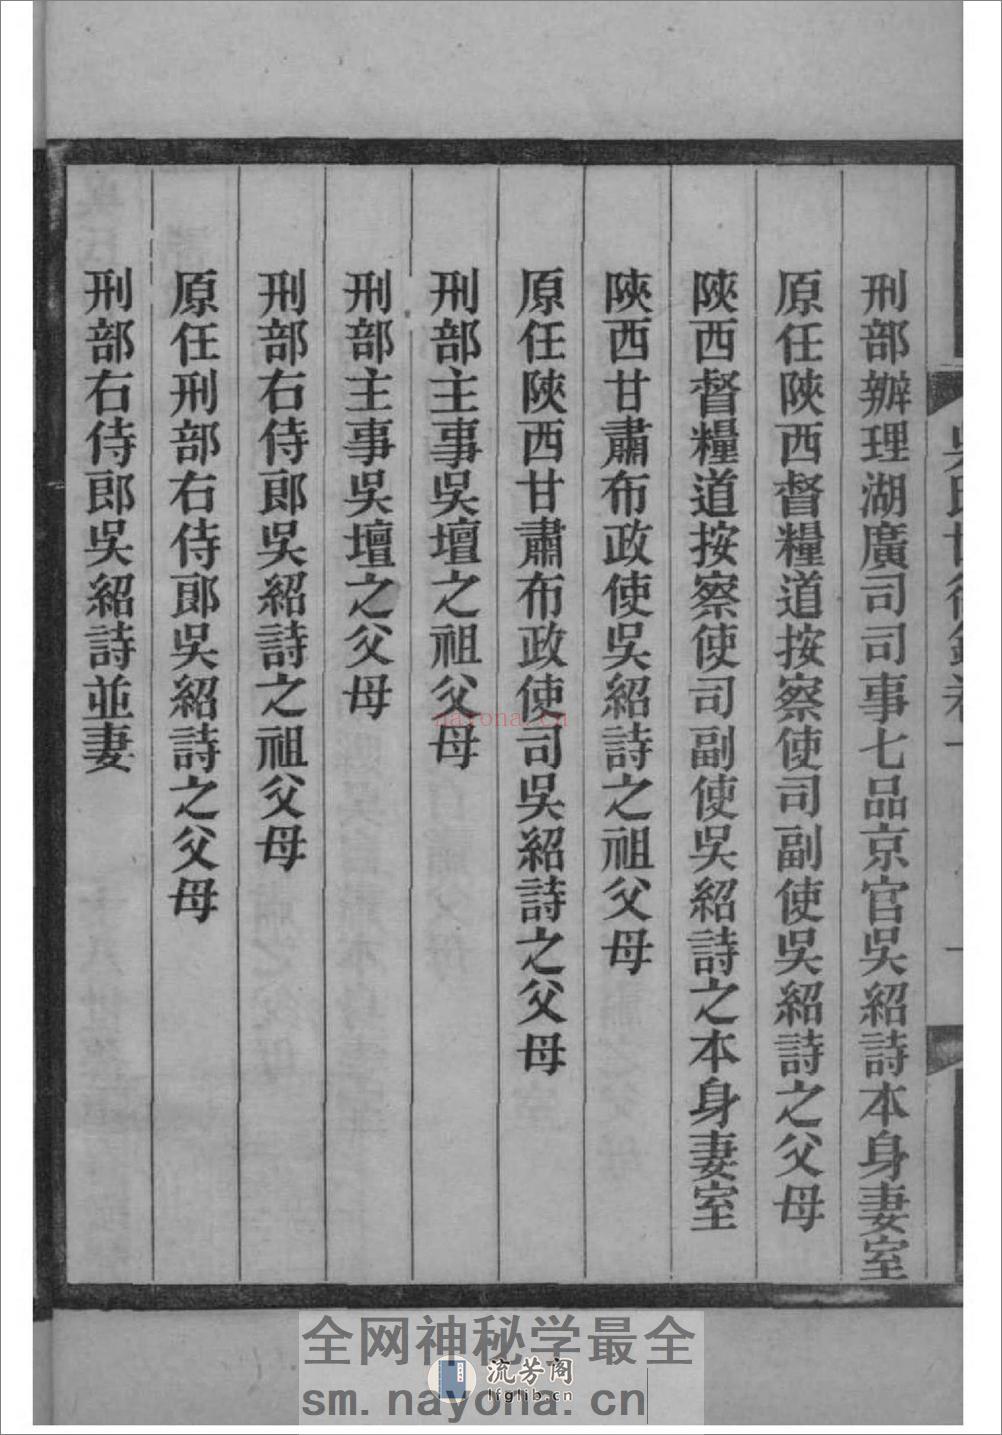 刑部辦理湖廣司司事七品京官吳紹詩本身妻室
原任陝西督糧道按察使司副使吳紹詩之父母
陝西督糧道按察使司副使吳紹詩之本身妻室
陝西甘肅布政使吳紹詩之祖父母
原任陝西甘肅布政使司吳紹詩之父母
刑部主事吳壇之祖父母
刑部主事吳壇之父母
刑部右侍郎吳紹詩之祖父母
原任刑部右侍郎吳紹詩之父母
刑部右侍郎吳紹詩並妻
nayona.cn
全网神秘学最全
流芳阁
lfglib.cn
sm.nayona.cn